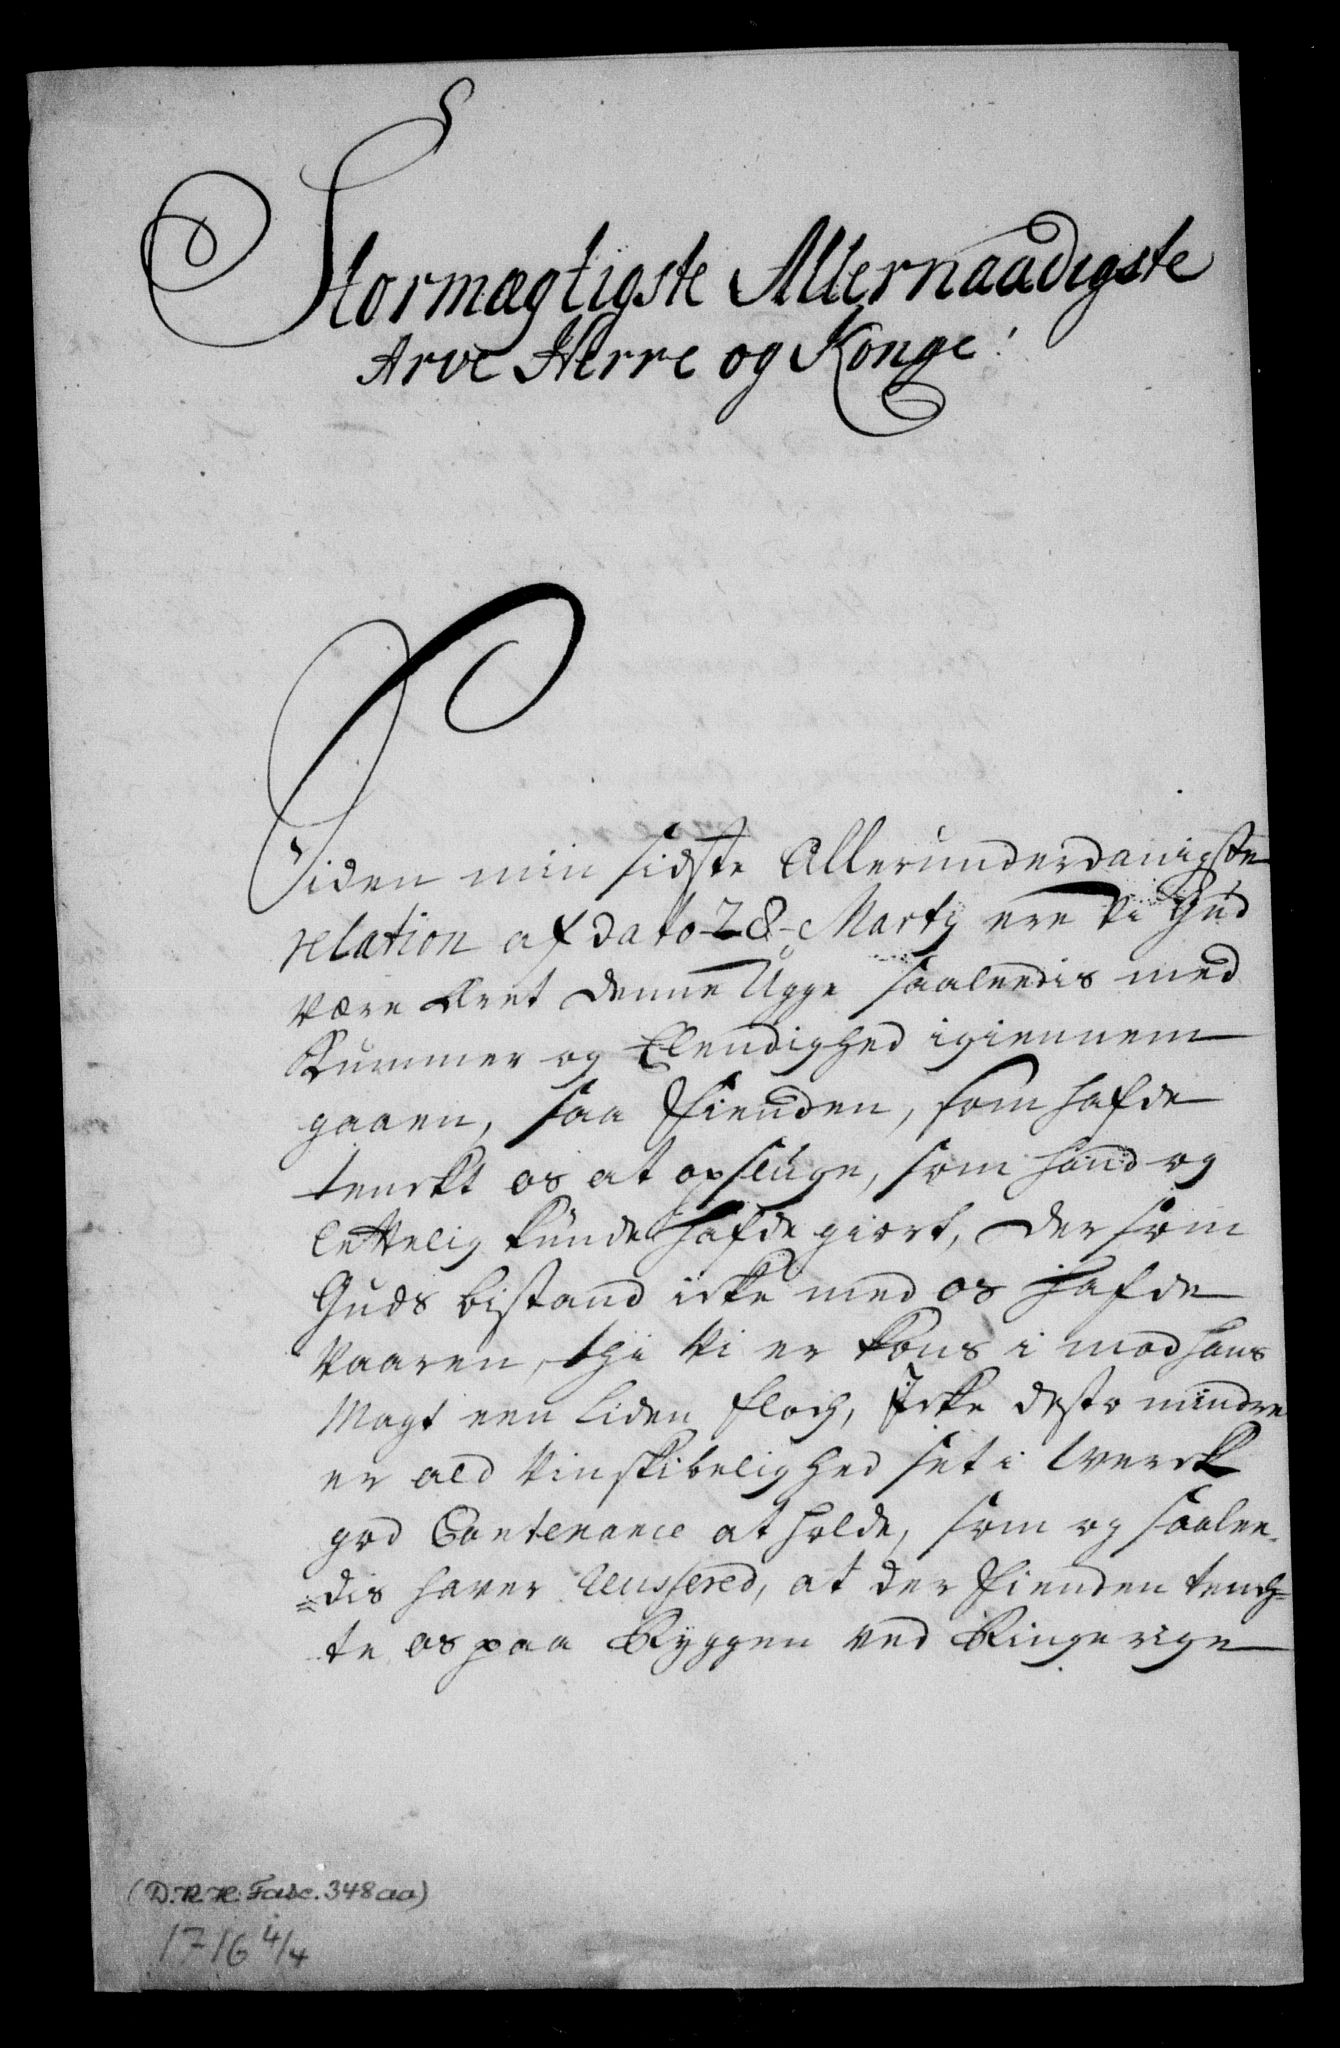 Stormægtigste Allernaadigste
Arve Herre og Konge!
Siden min sidste Allerunderdanigste
relation af dato 28 Marty ere vi Gud
være æret denne Ugge saaleedis med
Kummer og Elendighed igiennem
gaaen, saa Fienden, som hafde
tenckt os at opsluge, som hand og
lettelig kunde hafde giort, der som
Guds bistand icke med os hafde
vaaren, thi vi er kons i mod hans
Magt een liden floch, Icke desto mindre
er ald vinskibelighed set i verck
god Contenance at holde, som og saalee-
=dis haver reussered, at der Fienden tench=
te os paa Ryggen ved Ringerige
(D.K.K. Fasc. 348aa)
1716 4/4